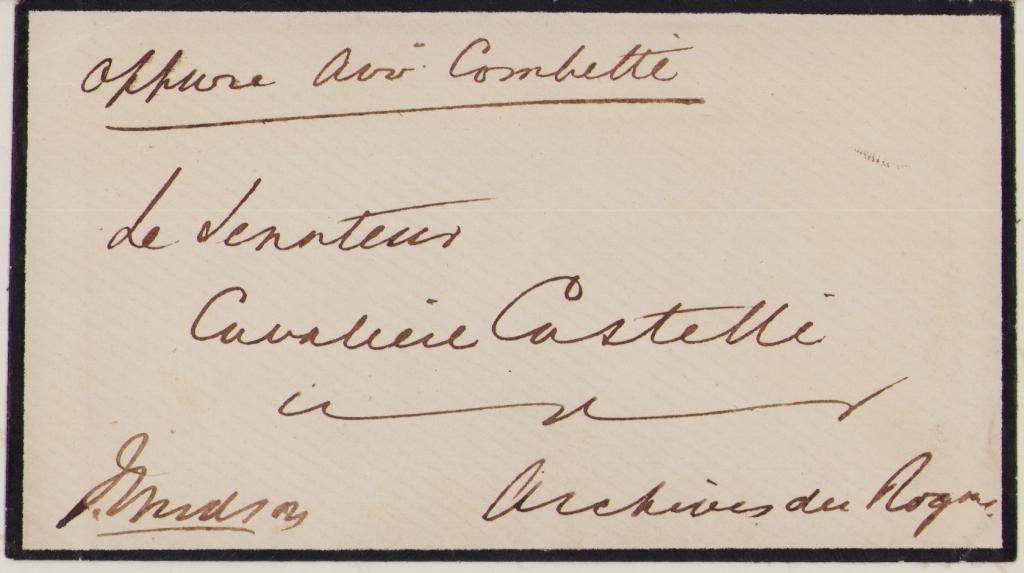 oppure Avv. Combetti
Le Senateur
Cavaliere Castelli
J. Hudson
Archives du Rogme.